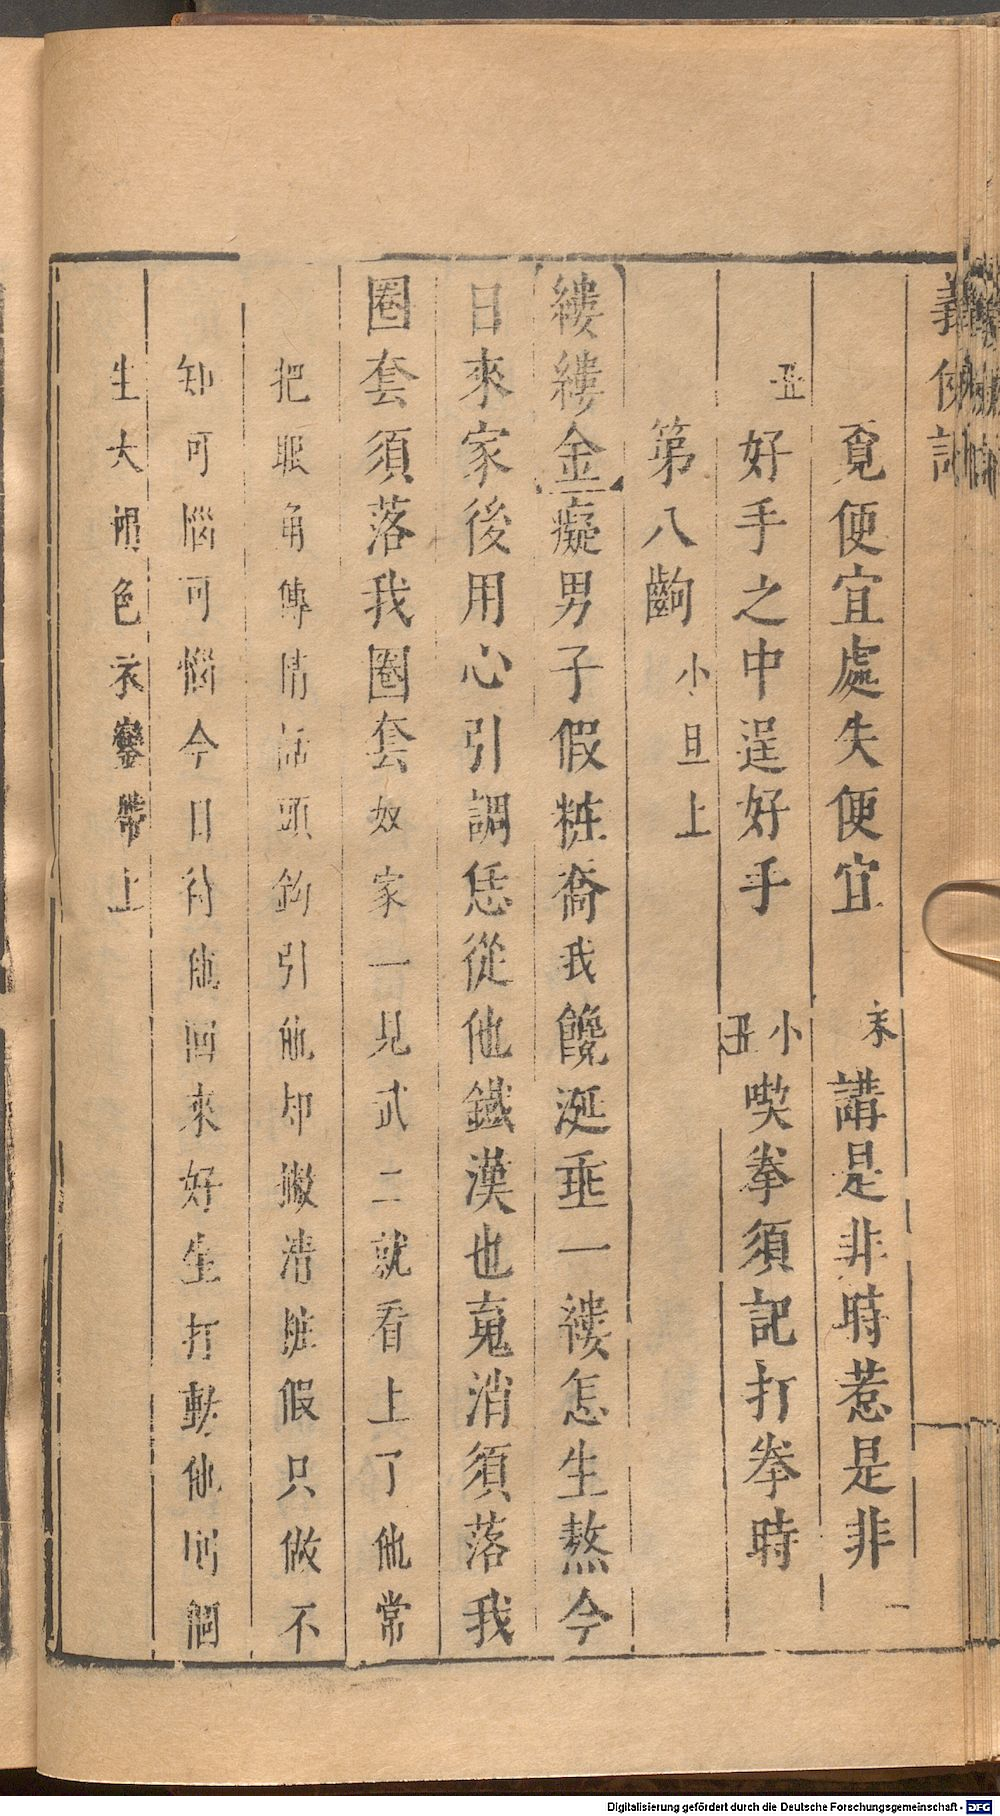 義俠記
覔便宜處失便宜 末講是非時惹是非
丑好手之中逞好手 小丑喫拳須記打拳時
第八齣 小旦上
縷縷金癡男子假粧喬我饞涎垂一褸怎生熬今
日來家後用心引調恁從他鐵漢也䰟消須落我
圈套須落我圈套奴家一見武二就看上了他常
把眼角傳情話頭鈎引他却撇清賍假只做不
知可惱可惱今日待他回來好生打動他則個
生大帽色衣鑾帶上
Digitalisierung gefördert durch die Deutsche Forschungsgemeinschaft - DFG